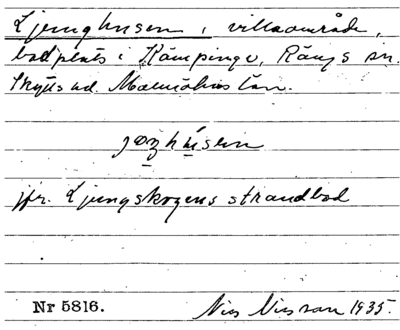 Ljunghusen, villaområde,
badplats i Kämpinge, Rängs sn.
Skytts hd. Malmöhus län.
jfr. Ljungskogens strandbad
Nr 5816.
Nils Nilsson 1935.